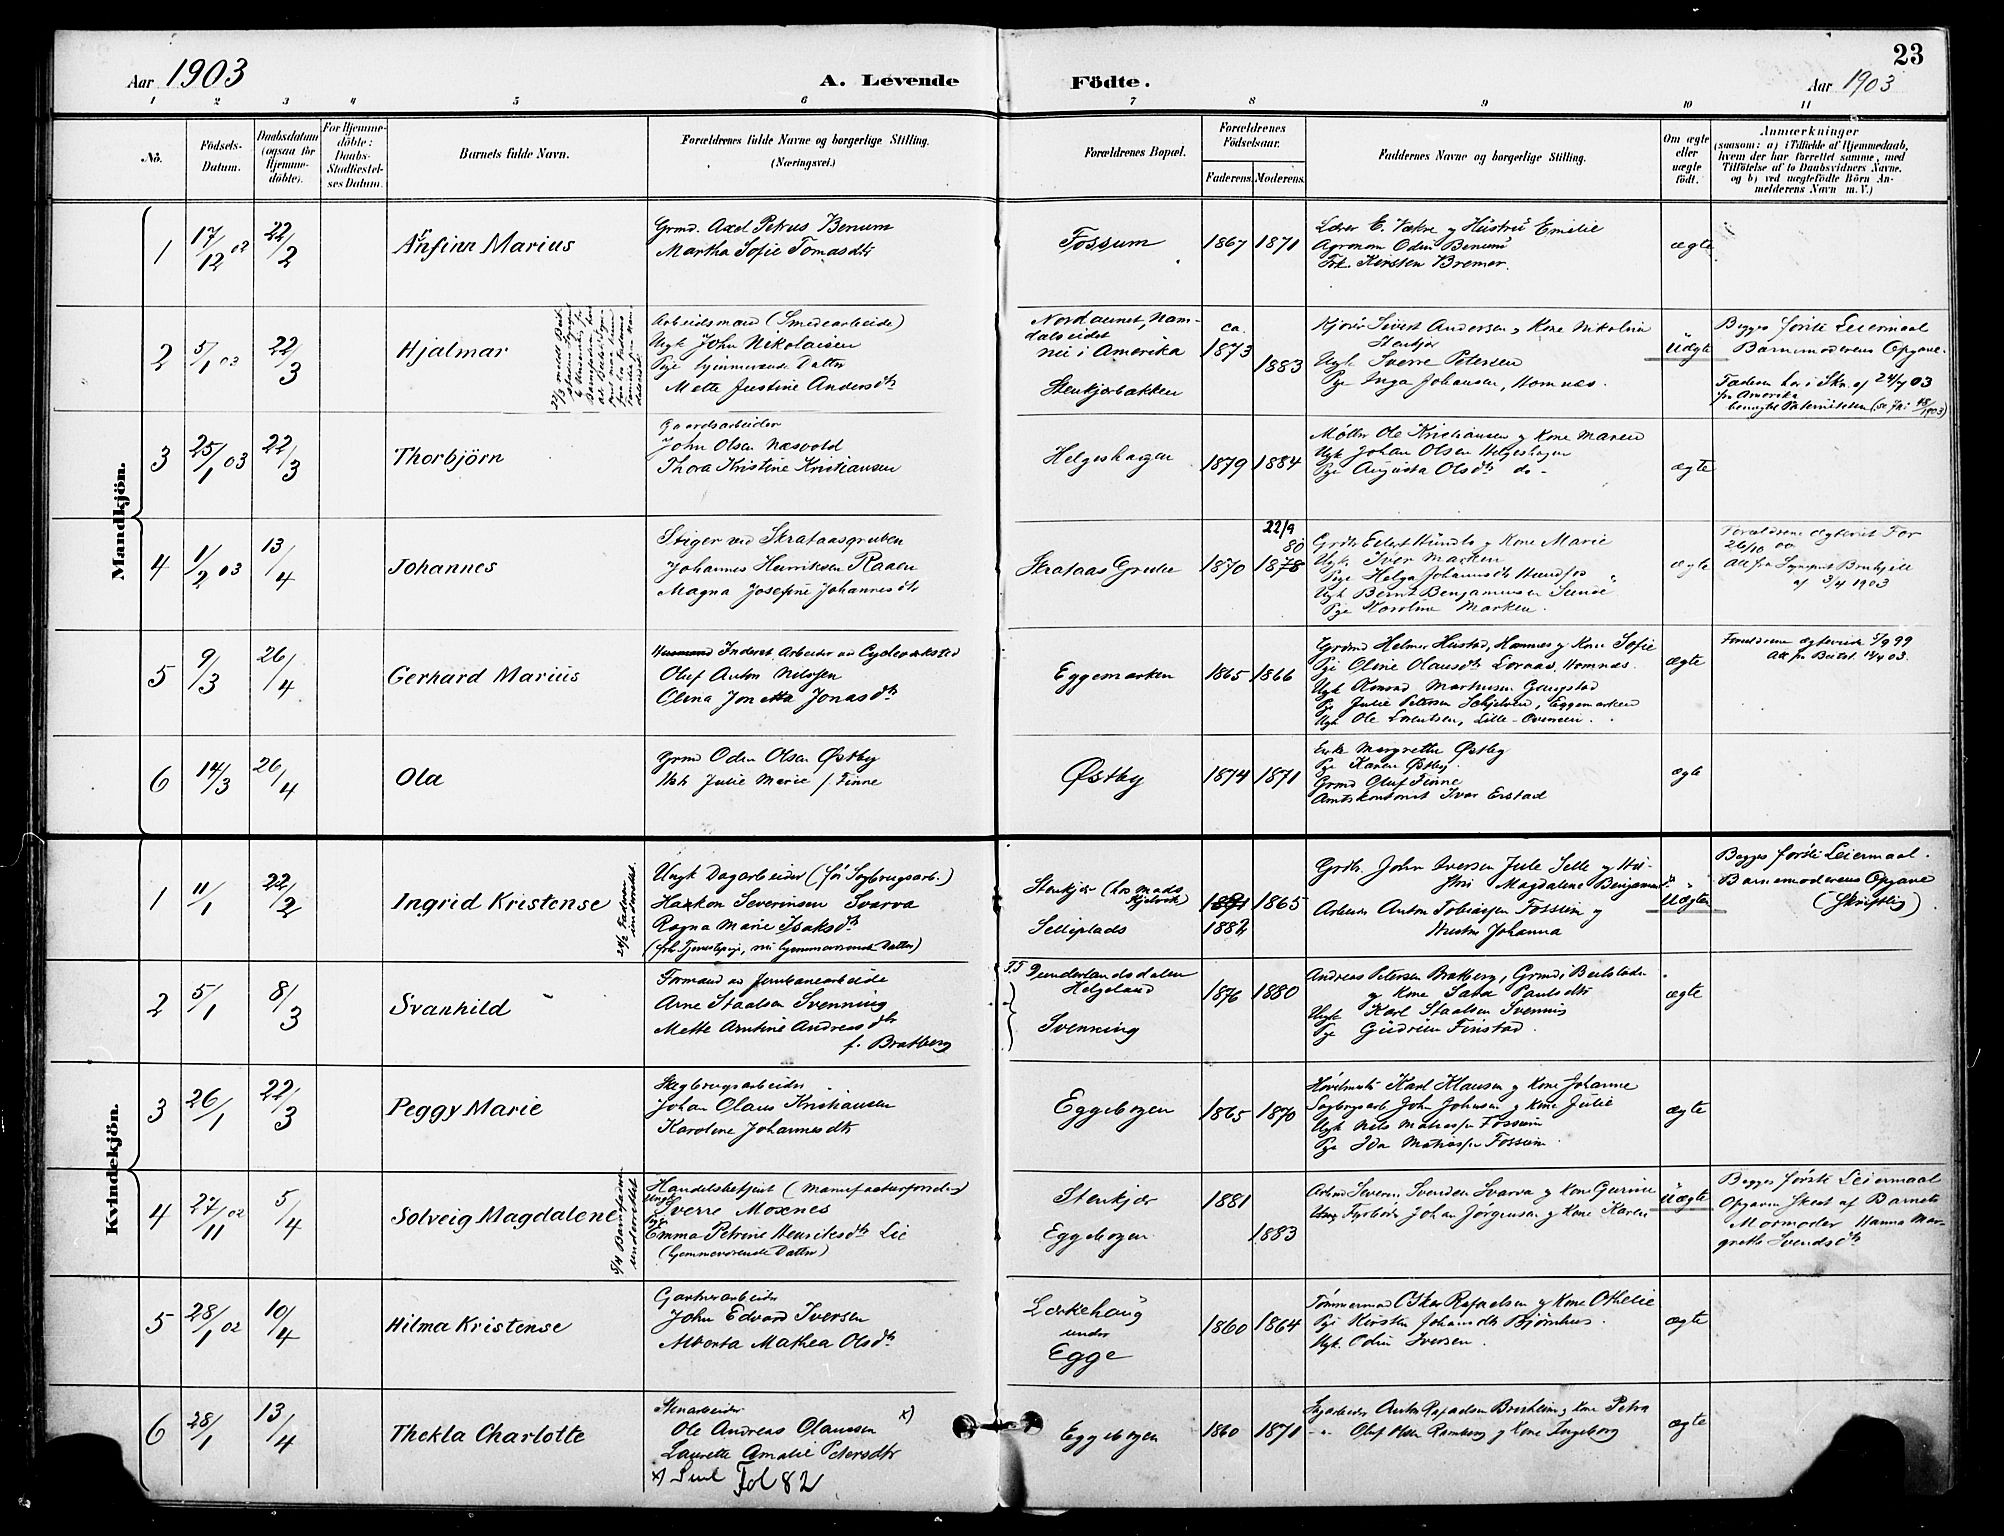 23
Aar 1903
A. Levende
Födte.
Aar 1903
1 2 3 4 5 6 7 8 9 10 11
No.
Födsels-
Datum.
Daabsdatum
(ogsaa for
Hjemme-
döbte).
For Hjemme-
döbte:
Daabs-
Stadfæstel-
ses Datum.
Barnets fulde Navn.
Forældrenes fulde Navne og borgerlige Stilling.
(Næringsvei.)
Forældrenes Bopæl.
Forældrenes
Födselsaar.
Faderens.
Moderens.
Faddernes Navne og borgerlige Stilling.
Om ægte
eller
uægte
födt.
Anmærkninger
(saasom: a) i Tilfælde af Hjemmedaab,
hvem der har forrettet samme, med
Tilföielse af to Daabsvidners Navne,
og b) ved uægtefödte Börn An-
melderens Navn m. V.)
Mandkjön.
1
17/12 02
22/2
Arnfinn Marius
Grmd. Axel Petrus Benum
Martha Sofie Tomasdtr
Fossum
1867
1871
Lærer E. Vækre og Hustru Emilie
Agronom Oden Benum
Frk. Kirsten Bremer.
ægte
2
5/1 03
22/3
Hjalmar
Arbeidsmand (Smedearbeide)
Ungk John Nikolaisen
Pige hjemmevær. Datter
Mette Justine Andersdtr
Nordaunet, Nam-
dalseidet
nu i Amerika
Stenkjærbakken
ca.
1873
1883
Sivert Andersen og Kone Nikolina
Stenkjær
Ungk Sverre Petersen
Pge Inga Johansen, Homnæs.
Uægte
Begges første Leiermaal
Barnemoderens Opgave.
Faderen har i Skr. af 24/4 03
fra Amerika
3
25/1 03
22/3
Thorbjörn
Gaardsarbeider
John Olsen Næsvold
Thora Kristine Kristiansen
Helgeshagen
1879
1884
Møller Ole Kristiansen og Kone Maren
Ungk Johan Olsen Helgeshagen
Pge Augusta Olsdtr do -
ægte
4
1/2 03
13/4
Johannes
Stiger ved Skrataasgruben
Johannes Henriksen Raaen
Magna Josefine Johannesdtr
Skrataas Grube
1870
22/9
80
1878
og Kone Marie
Ungk Iver Marken
Pige Helga Johannesdtr
Ungk Bernt Benjaminsen Sunde
Pge Karoline Marken.
ægte
Forældrene ægteviet
26/10 00
af 3/4 1903
5
9/3
26/4
Gerhard Marius
Husmand Inderst Arbeider ved Cycleværksted
Oluf Anton Nilssen
Olina Jonetta Jonasdtr
Eggemarken
1865
1866
Grdmd Helmer Hustad, Homnes og Kone Sofie
Pge Oline Olausdtr Lornæs, Homnæs.
Ungk Konrad Martinusen Gaustad
Pge Julie Petersen, Eggemarken
Ungk Ole Lorentsen, Lille-Oveneen.
ægte
Forældrene ægteviede 5/9 99
6
14/3
26/4
Ola
Grmd Oden Olsen Østby
Julie Marie f Finne
Østby
1874
1871
Enke Margrethe Østby
Pge Karen Østby.
Grmd Oluf Finne
Amtskontorist Ivar Erstad
ægte
Kvindekjön.
1
11/1
22/2
Ingrid Kristense
Ungk Dagarbeider (før Sagbrugsarb.)
Haakon Severinsen Svarva
Ragna Marie Isaksdtr
(før Tjenestepige, nu hjemmeværende Datter)
Stenkjær (hos Mads
Selliplads
1882
1865
Grdbr. John Iversen Jule Selle og Hu-
stru Magdalene Benjamin
Arbeider Anton Tobiassen Fossum og
Hustru Johanna
Uægte
Begges første Leiermaal.
Barnemoderens Opgave
(Skriftlig)
2
5/1
8/3
Svanhild
Formand ved Jernbanearbeide
Arne Staalsen Svenning
Mette Arntine Andreasdtr
f. Bratberg
Dunderlandsdalen
Helgeland
Svenning
1876
1880
Andreas Petersen Bratberg, Grmd i Beitstaden
og Kone Sara Paulsdtr
Ungk Karl Staalsen Svenning
Pge Gudrun Finstad.
ægte
3
26/1
22/3
Peggy Marie
Sagbrugsarbeider
Johan Olaus Kristiansen
Karoline Johannesdtr
Eggebogen
1865
1870
Karl Klausen og Kone Johanne
Sagbrugsarb. John Johnsen og Kone Julie
Ungk Nils Matiassen Fossum
Pge Ida Matiassen Fossum.
ægte
4
27/11 02
5/4
Solveig Magdalene
5/4 Barnefaderen
underrettet
Handelsbetjent (Manufacturforretn.)
Ungk
Sverre Moxnes
Pge
Emma Petrine Henriksdtr Lie
(hjemmeværende Datter)
Stenkjær
Eggebogen
1881
1883
Arbmd Severin Svendsen Svarva og Kone Gurine
Fyrbøder Johan Jørgensen og Kone Karen
Uægte
Begges første Leiermaal
Opgaven skeet af Barnets
Mormoder Hanna Mar-
grethe Svendsdtr
5
28/1 02
10/4
Hilma Kristense
Gartnerarbeider
John Edvard Iversen
Alberta Mathea Olsdtr
Lærkehaug
under
Egge
1860
1864
Tømmermand Oskar Rafaelsen og Kone Othelie
Pge Kirsten Johansdtr Bjørnhus.
Ungk. Odin Iversen.
ægte
6
28/1
13/4
Thekla Charlotte
Stenarbeider
Ole Andreas Olaussen x)
Laurette Amalie Petersdtr
x)
Fol 82
Eggebogen
1860
1871
Anton Rafaelsen og Kone Petra
-"- Oluf Olsen Ramberg og Kone Ingeborg
ægte